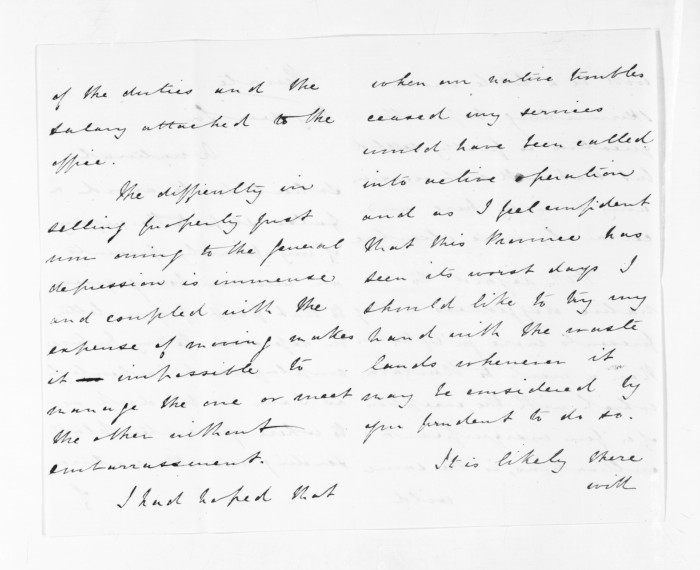 of the duties and the
salary attached to the
office.
The difficulty in
selling property just
now owing to the general
depression is immense
and coupled with the
expense of moving makes
it — impossible to
manage the one or meet
the other without
embarrassment.
I had hoped that
when our native troubles
ceased my services
would have been called
into active operation
and as I feel confident
that this Province has
seen its worst days I
should like to try my
hand with the waste
lands whenever it
may be considered by
you prudent to do so.
It is likely there
will